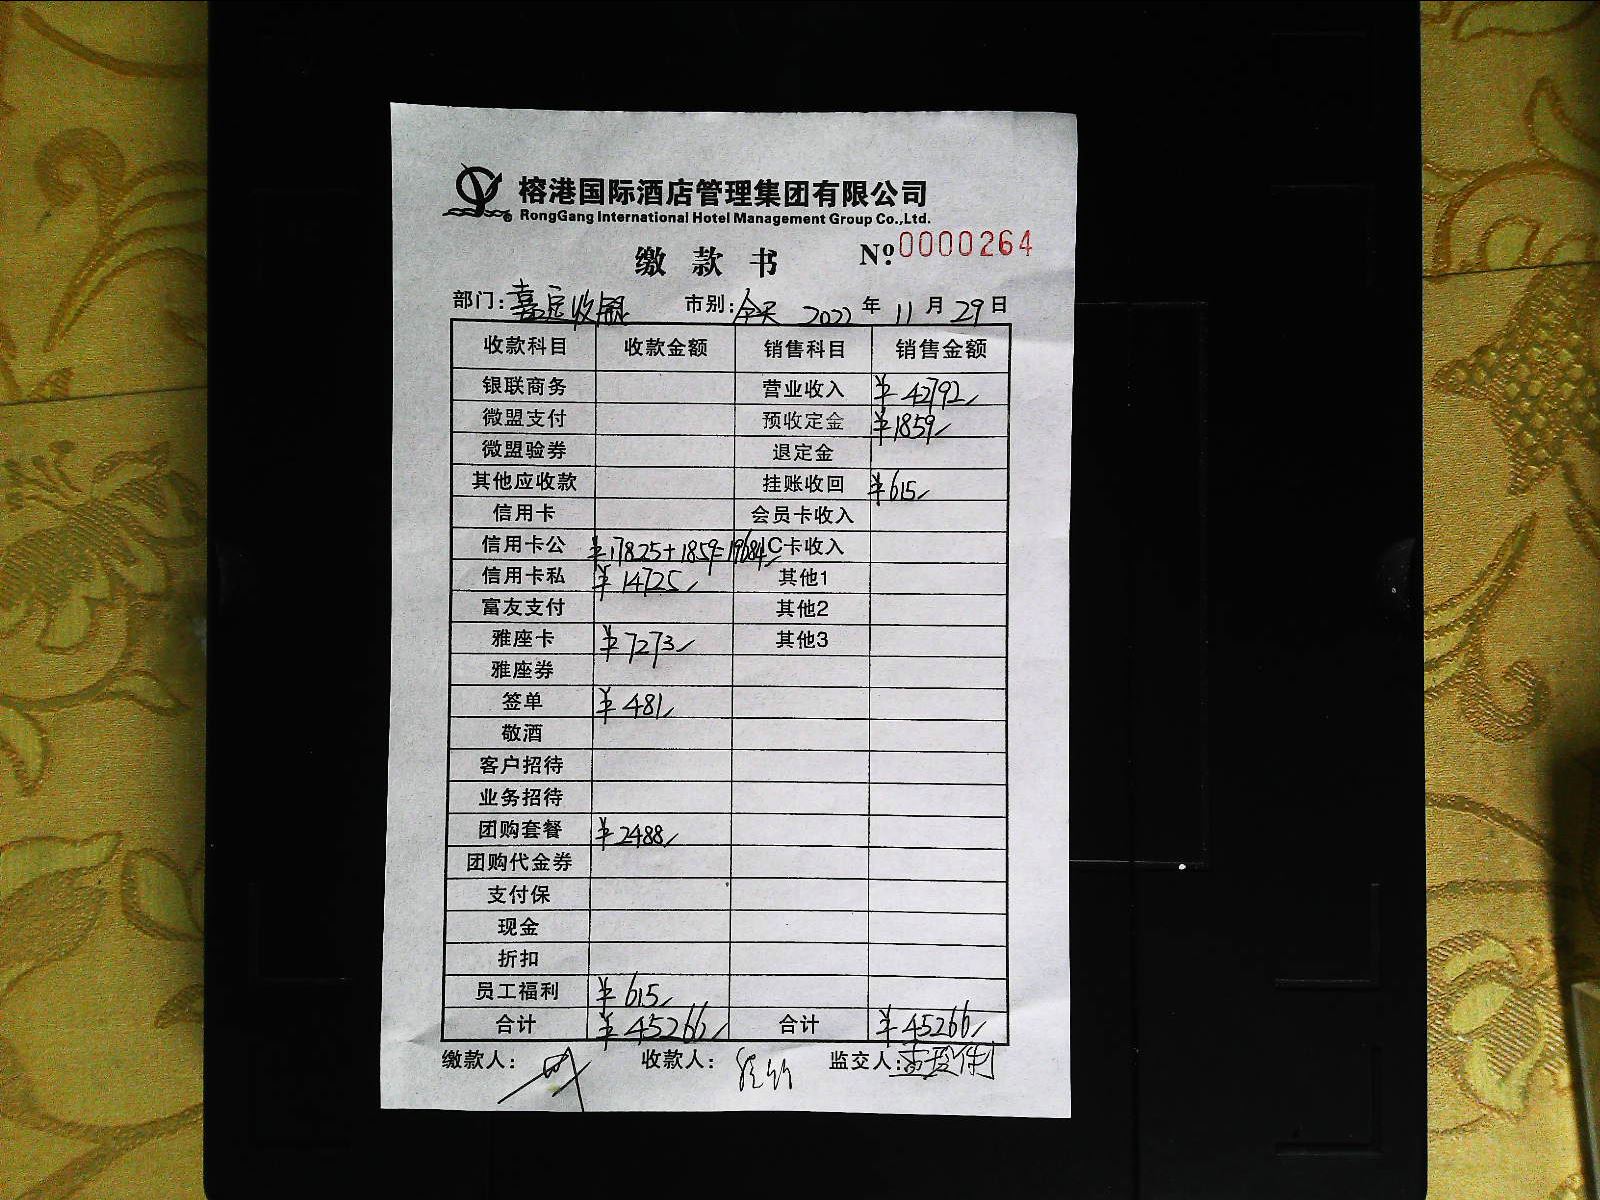 榕港国际酒店管理集团有限公司
RongGang International Hotel Management Group Co.,Ltd.
缴款书 Nº 0000264
部门: 嘉定收银 市别: 全天 2022 年 11 月 29 日
收款科目 收款金额 销售科目 销售金额
银联商务 营业收入 ¥42792
微盟支付 预收定金 ¥1859
微盟验券 退定金
其他应收款 挂账收回 ¥615
信用卡 会员卡收入
信用卡公 ¥17825+1859=19684 IC卡收入
信用卡私 ¥14725 其他1
富友支付 其他2
雅座卡 ¥7273 其他3
雅座券
签单 ¥481
敬酒
客户招待
业务招待
团购套餐 ¥2488
团购代金券
支付保
现金
折扣
员工福利 ¥615
合计 ¥45266 合计 ¥45266
缴款人: 收款人: 监交人: